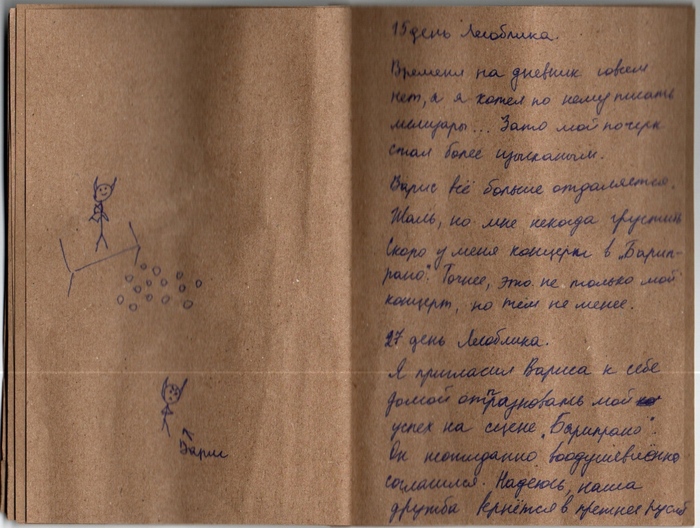 Варис
15 день Люблика.
Времени на дневник совсем
нет, а я хотел по нему писать
мемуары... Зато мой почерк
стал более изысканым.
Варис всё больше отдаляется.
Жаль, но мне некогда грустить
Скоро у меня концерт в „Барип-
рано". Точнее, это не только мой
концерт, но тем не менее.
27 день Люблика.
Я пригласил Вариса к себе
домой отпраздновать мой
успех на сцене „Барипрано".
Он неожиданно воодушевлённо
согласился. Надеюсь, наша
дружба вернётся в прежнее русло